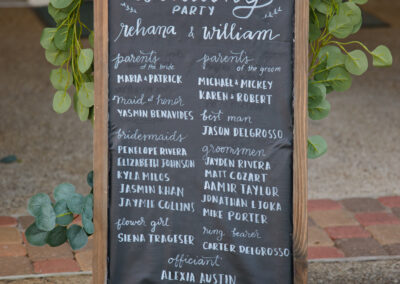 PARTY
rehana & william
parents of the bride
MARIA & PATRICK
parents of the groom
MICHAEL & MICKEY
KAREN & ROBERT
maid of honor
YASMIN BENAVIDES
best man
JASON DELGROSSO
bridesmaids
PENELOPE RIVERA
ELIZABETH JOHNSON
KYLA MILOS
JASMIN KHAN
JAYMIE COLLINS
groomsmen
JAYDEN RIVERA
MATT COZART
AAMIR TAYLOR
JONATHAN LJOKA
MIKE PORTER
flower girl
SIENA TRAGESER
ring bearer
CARTER DELGROSSO
officiant
ALEXIA AUSTIN